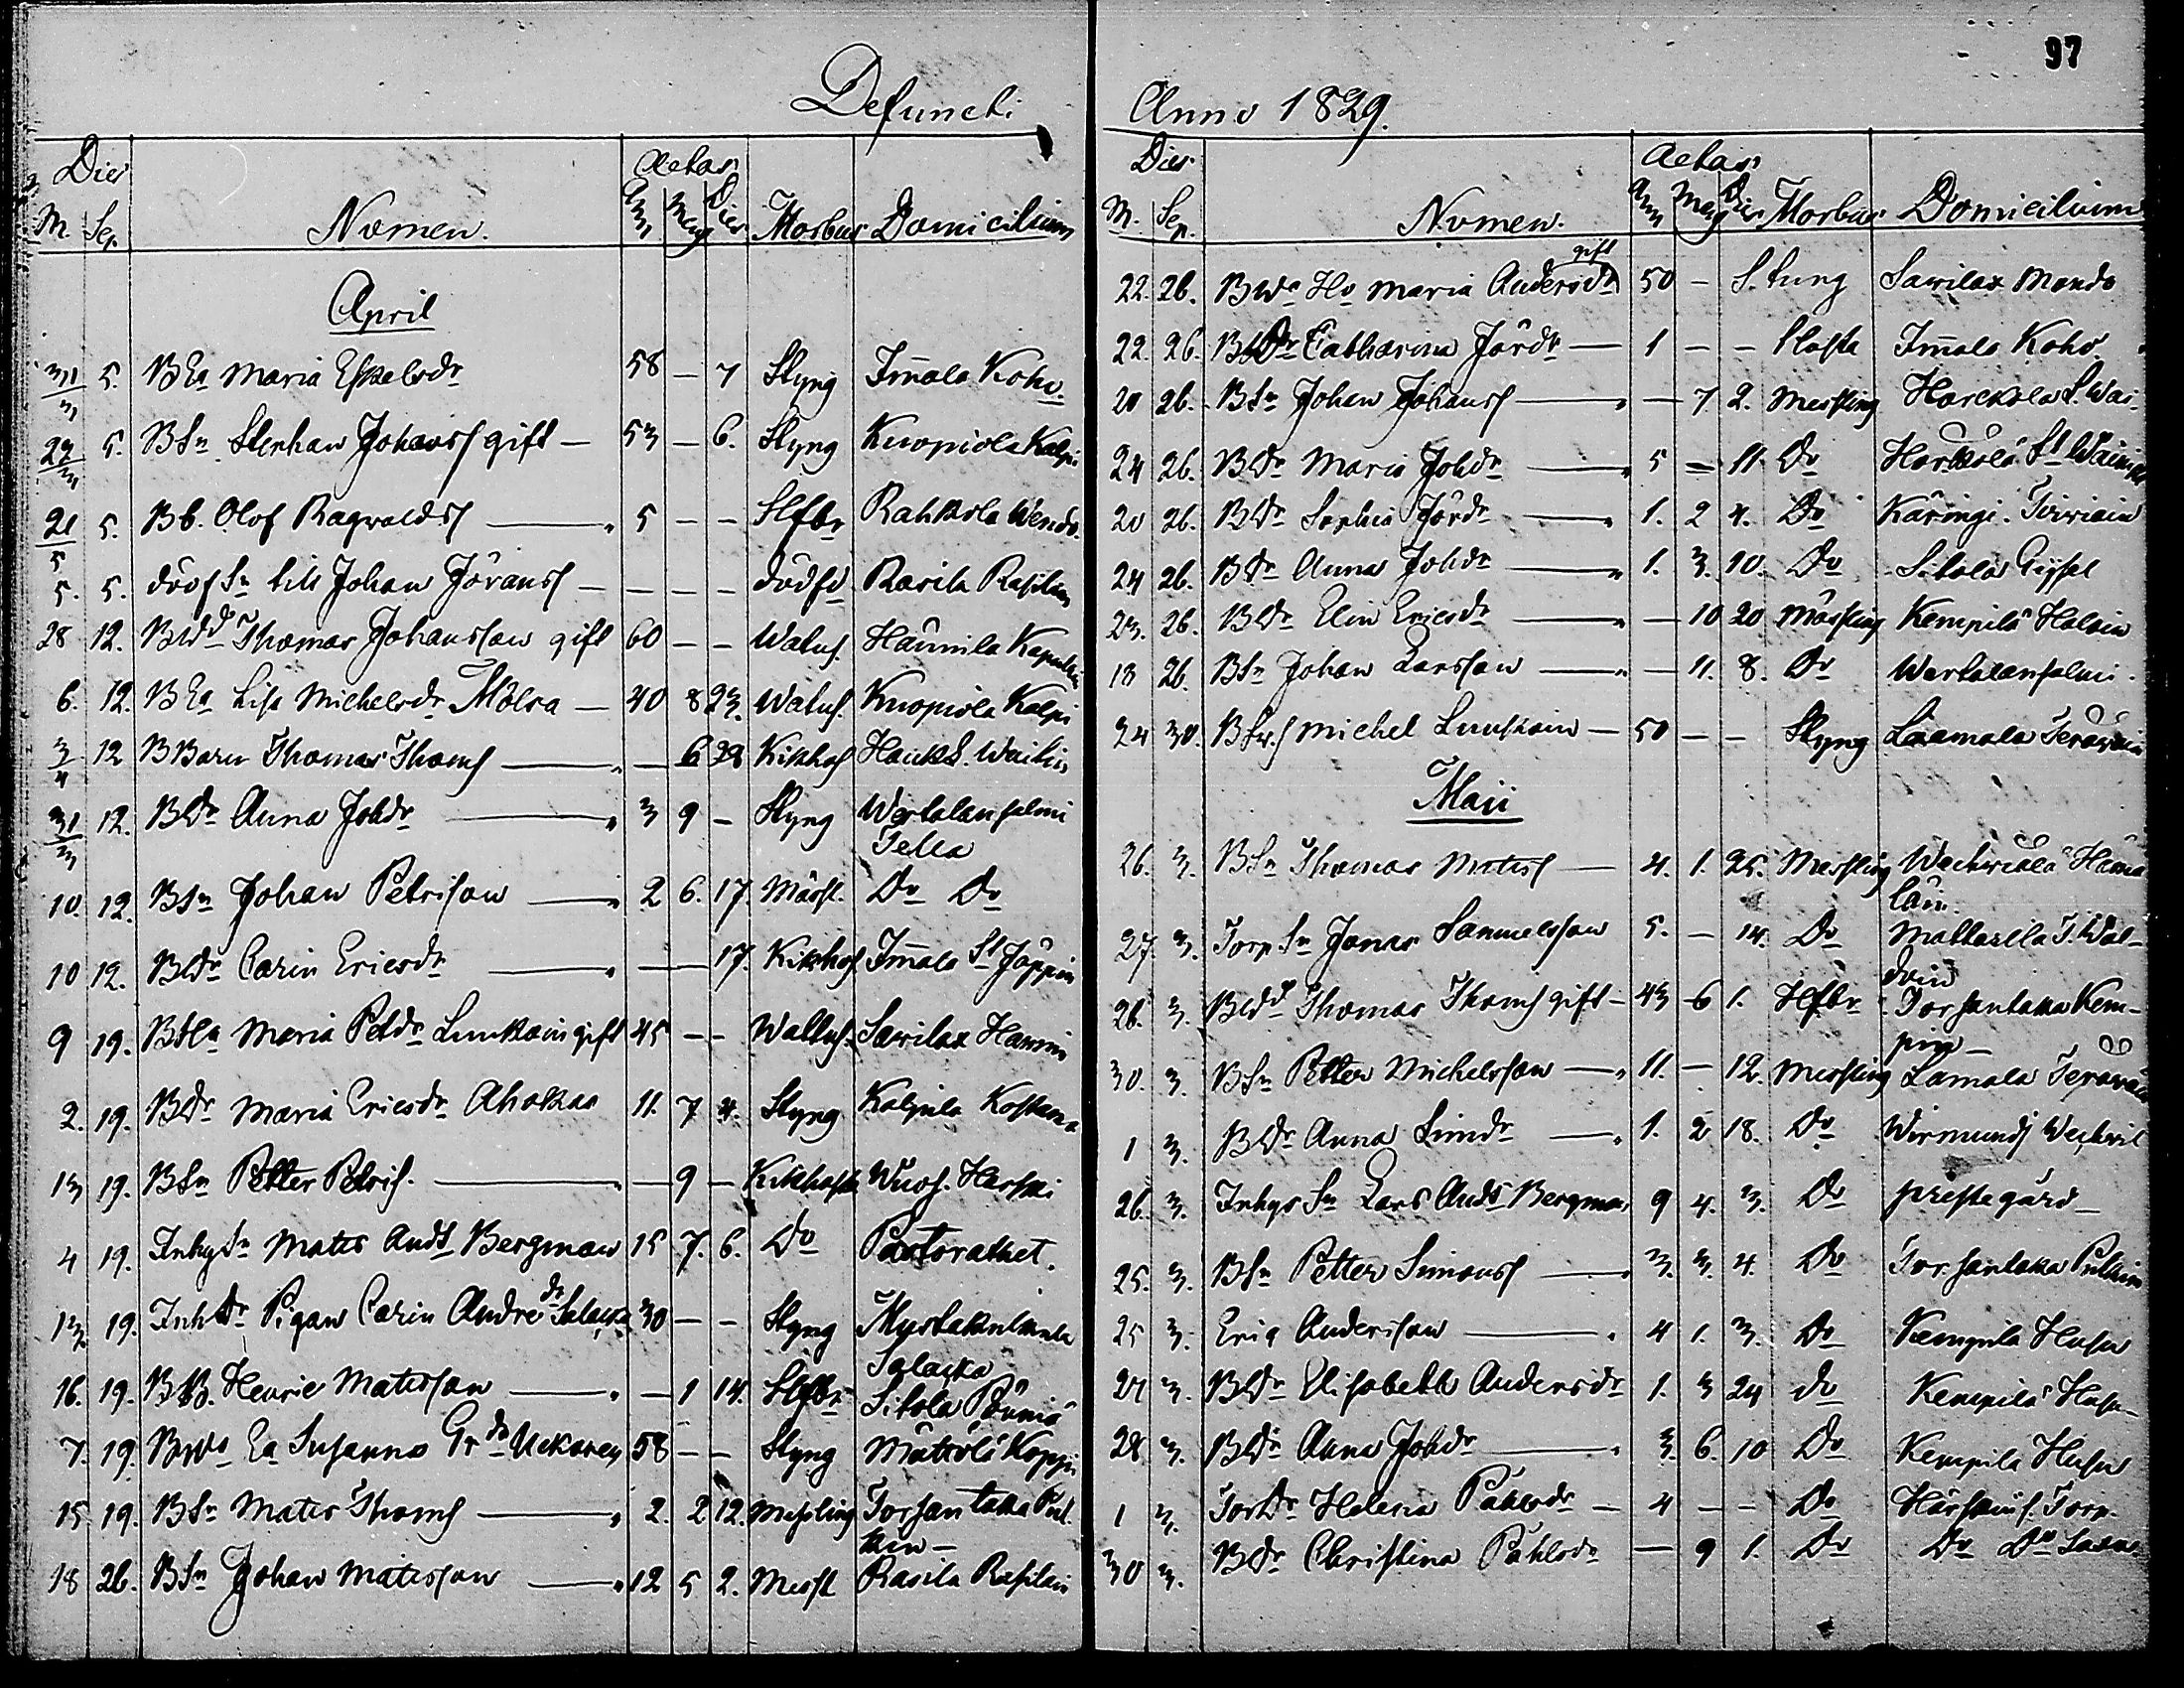 97
Defuncti
Dies
Aetas
M. Sep. Nomen. Ann Mens Dies Morbus Domicilium
April
31/3 5. B Ea Maria Eskelsdr 58 — 7 Styng Im̄ala Koho.
22/3 5. BSn Stephan Johanss gift — 53 — 6. Styng Kuopiola Kolpi
21/5 5. Bb. Olof Ragvaldss — 5 — — Slfbr Rahkola Wends.
5. 5. död f Sn till Johan Jöranss — — — — dödfd Rasila Rasilain
28 12. BWdd Thomas Johansson gift 60 — — Watus. Haunila
6. 12. B Ea Lisa Michelsdr Mölsa — 40 8 23. Watus. Kuopiola Kolpi
3/4 12 B Barn Thomas Thoms — — 6 28 Kikhos Hauk S. Waitin
31/3 12. BDr Anna Johdr — 3 9 — Styng Wertalansalmi
Tella
10. 12. BSn Johan Petrison — 2 6. 17. Mässl. Do Do
10 12. BDr Carin Ericsdr — — — 17. Kikhos Im̄ala St Jäppin
9 19. BHu Maria Petdr Luukain gift 45 — — Wattus. Sawilax Hannin
2. 19. BDr Maria Ericsdr Ahokas 11. 7 4. Styng Kaljula
13 19. BSn Petter Petris. — — 9 — Kikhosta Wuos. Harski
4 19. Inhy Sn Mats Ands Bergman 15 7. 6. Do Pastorathet.
13. 19. Inh Dr Pigan Carin Andredr Salacka 30 — — Styng Mustakulkula
Salacka
16. 19. Henric Matsson — — 1 14. Slfbr Sitola Pönniä
7. 19. Ea Susanna Grdr Uckonen 58 — — Styng Mätrölä Koppi
15. 19. BSn Mats Thoms — 2. 2 12. Messling Torsantaka Pul
kin —
18 26. BSn Johan Matsson — 12 5 2. Messl Rasila Rasilain
Anno 1829.
Dies
Aetas
M. Sep. Nomen. Ann Mens Dies Morbus Domicilium
gift
22. 26. BWa Hu Maria Andersdr 50 — S. Lung Sawilax Mondo
22. 26. BDr Catharina Jördr — 1 — — Hosta Im̄ala Koho.
20 26. BSn Johan Johanss — — 7 2. Messling Harckola S. Wai.
24 26. BDr Maria Johdr — 5 — 11. Do Harkola St Wainik
20 26. BDr Sophia Jördr — 1. 2 4. Do Käringi. Tirriain
24 26. BDr Anna Johdr — 1. 3. 10. Do Sitola
23. 26. BDr Elin Ericsdr — — 10 20 Mässling Kempilä Halain
18 26. BSn Johan Larsson — — 11. 8. Do Wertalansalmi.
24 30. Michel Luukain — 50 — — Styng Laamala Teräväin
Maii
26. 3. BSn Thomas Matss — 4. 1. 25. Messling Wechvialä Hämä
läin.
27. 3. Torp. Sn Jonas Samuelsson 5. — 14. Do Mattasella T. Wal-
doin
26. 3. BWdd Thomas Thoms gift — 43 6 1. Hlfbr Torsantaka Kem-
pin —
30. 3. BSn Petter Michelsson — 11. — 12. Messling Lamala Teräväin
1 3. BDr Anna Simdr — 1. 2 18. Do Wirmundj Wechvil
26. 3. Inhys Sn Lars Ands Bergman 9 4. 3. Do prestegård —
25. 3. BSn Petter Simonss — 3. 3. 4. Do Torsantaka Pulkin
25 3. Eric Anderison — 4 1. 3. Do Kempila Husu
27 3. BDr Elisabeth Andersdr 1. 3 24 do Kempilä Husu —
28 3. BDr Anna Johdr — 3. 6. 10 Do Kempila Husu
1 3. Tor Dr Helena Påhlsdr — 4 — — Do Härskiis. Torp.
30 3. BDr Christina Påhlsdr — 9 1. Do Do Do